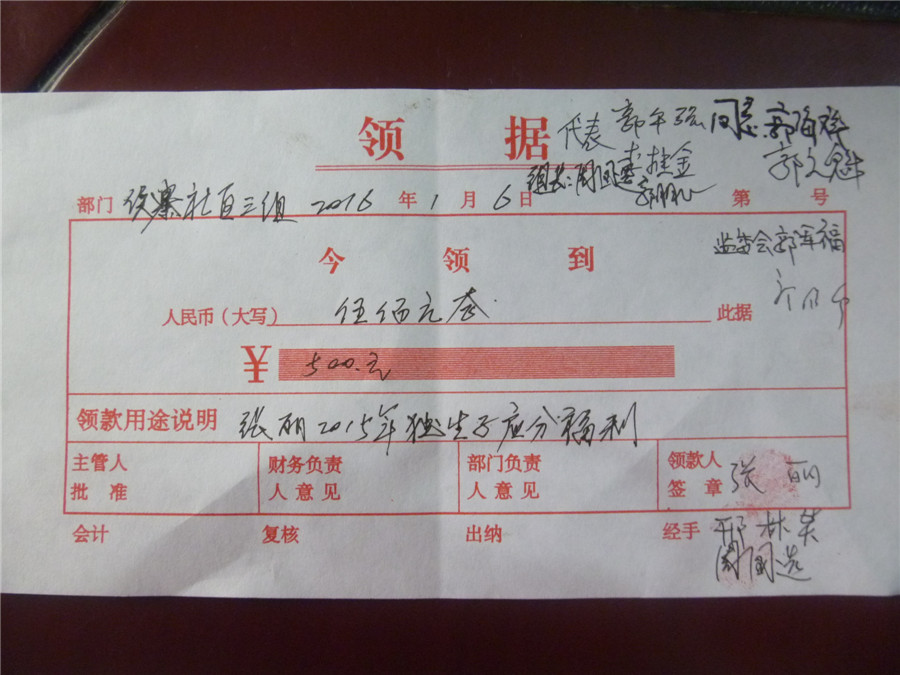 领 据
代表 郭年强 同意 郭海癸
组长:周国选 李挂金 郭文魁
部门 侯寨社百三组 2016 年 1 月 6 日 第 号
监委会 郭军福
今 领 到
人民币(大写) 伍佰元整 此据
¥ 500.元
领款用途说明 张丽2015年独生子应分福利
主管人 财务负责 部门负责 领款人
批 准 人意见 人意见 签 章 张 丽
会计 复核 出纳 经手 邢林英
周国选